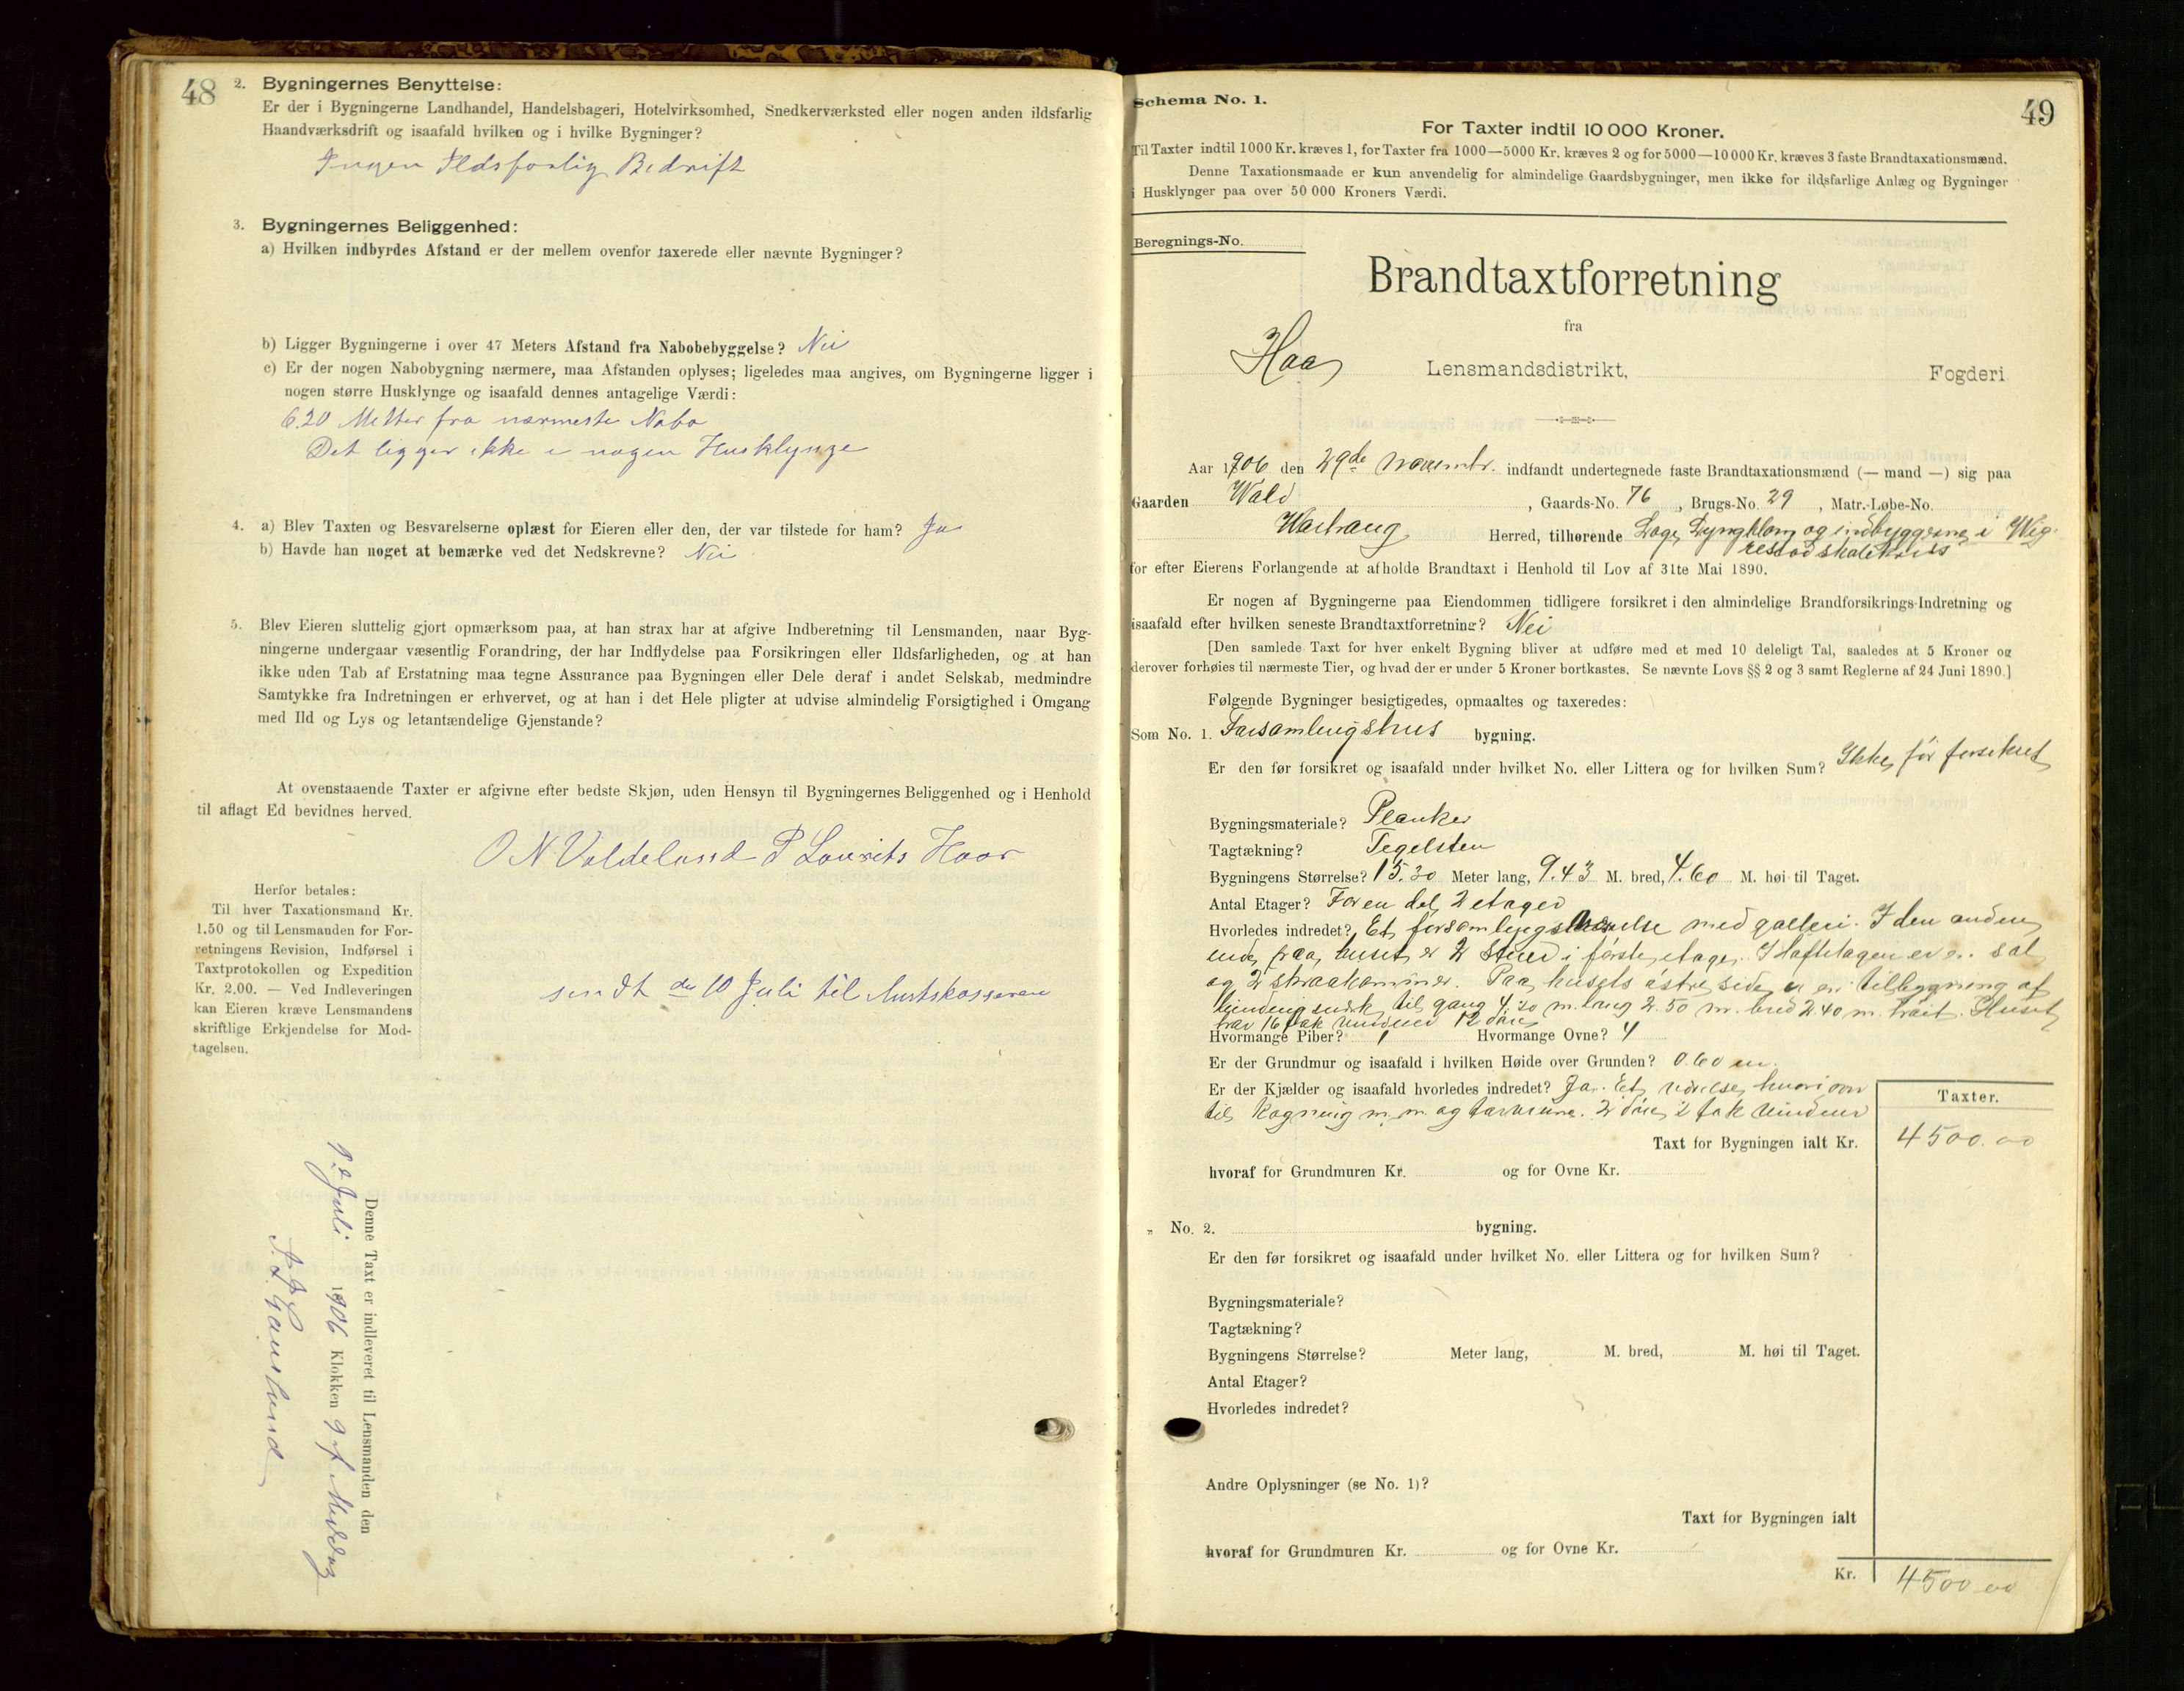 48
2. Bygningernes Benyttelse:
Er der i Bygningerne Landhandel, Handelsbageri, Hotelvirksomhed, Snedkerværksted eller nogen anden ildsfarlig
Haandværksdrift og isaafald hvilken og i hvilke Bygninger?
Ingen Ildsfarlig Bedrift
3. Bygningernes Beliggenhed:
a) Hvilken indbyrdes Afstand er der mellem ovenfor taxerede eller nævnte Bygninger?
b) Ligger Bygningerne i over 47 Meters Afstand fra Nabobebyggelse? Nei
c) Er der nogen Nabobygning nærmere, maa Afstanden oplyses; ligeledes maa angives, om Bygningerne ligger i
nogen større Husklynge og isaafald dennes antagelige Værdi:
6.20 Metter fra nærmeste Nabo
Det ligger ikke i nogen Husklynge
4. a) Blev Taxten og Besvarelserne oplæst for Eieren eller den, der var tilstede for ham? Ja
b) Havde han noget at bemærke ved det Nedskrevne? Nei
5. Blev Eieren sluttelig gjort opmærksom paa, at han strax har at afgive Indberetning til Lensmanden, naar Byg-
ningerne undergaar væsentlig Forandring, der har Indflydelse paa Forsikringen eller Ildsfarligheden, og at han
ikke uden Tab af Erstatning maa tegne Assurance paa Bygningen eller Dele deraf i andet Selskab, medmindre
Samtykke fra Indretningen er erhvervet, og at han i det Hele pligter at udvise almindelig Forsigtighed i Omgang
med Ild og Lys og letantændelige Gjenstande?
At ovenstaaende Taxter er afgivne efter bedste Skjøn, uden Hensyn til Bygningernes Beliggenhed og i Henhold
til aflagt Ed bevidnes herved.
O N Valdeland P Laurits Haar
Herfor betales:
Til hver Taxationsmand Kr.
1.50 og til Lensmanden for For-
retningens Revision, Indførsel i
Taxtprotokollen og Expedition
Kr. 2.00. — Ved Indleveringen
kan Eieren kræve Lensmandens
skriftlige Erkjendelse for Mod-
tagelsen.
sendt de 10 Juli til Amtskasseren
Denne Taxt er indleveret til Lensmanden den
Juli 1906 Klokken 9 f Middag
Gausland
49
Schema No. 1.
For Taxter indtil 10 000 Kroner.
Til Taxter indtil 1000 Kr. kræves 1, for Taxter fra 1000—5000 Kr. kræves 2 og for 5000—10 000 Kr. kræves 3 faste Brandtaxationsmænd.
Denne Taxationsmaade er kun anvendelig for almindelige Gaardsbygninger, men ikke for ildsfarlige Anlæg og Bygninger
i Husklynger paa over 50 000 Kroners Værdi.
Beregnings-No.
Brandtaxtforretning
fra
Haa Lensmandsdistrikt, Fogderi
Aar 1906 den 29de novembr. indfandt undertegnede faste Brandtaxationsmænd (— mand —) sig paa
Gaarden Wald, Gaards-No. 76, Brugs-No. 29, Matr.-Løbe-No.
Warhaug Herred, tilhørende Loge Lyngklang og indbyggerne i Wig-
restad skolekreds
for efter Eierens Forlangende at afholde Brandtaxt i Henhold til Lov af 31te Mai 1890.
Er nogen af Bygningerne paa Eiendommen tidligere forsikret i den almindelige Brandforsikrings-Indretning og
isaafald efter hvilken seneste Brandtaxtforretning? Nei
[Den samlede Taxt for hver enkelt Bygning bliver at udføre med et med 10 deleligt Tal, saaledes at 5 Kroner og
derover forhøies til nærmeste Tier, og hvad der er under 5 Kroner bortkastes. Se nævnte Lovs §§ 2 og 3 samt Reglerne af 24 Juni 1890.]
Følgende Bygninger besigtigedes, opmaaltes og taxeredes:
Som No. 1. Forsamlingshus bygning.
Er den før forsikret og isaafald under hvilket No. eller Littera og for hvilken Sum? Ikke før forsikret
Bygningsmateriale? Planker
Tagtækning? Tegelsten
Bygningens Størrelse? 15.30 Meter lang, 9.43 M. bred, 4.60 M. høi til Taget.
Antal Etager? For en del 2 etager
Hvorledes indredet? Et forsamlingsværelse med galleri. I den anden
ende paa huset er 2 stuer i første etage. I loftetagen er en sal
og 2 skraakammer. Paa husets østre side er en tilbygning af
til gang 4.20 m. lang 2.50 m. bred 2.40 m. høit. Huset
har 16 fak vinduer 12 døre
Hvormange Piber? 1 Hvormange Ovne? 4
Er der Grundmur og isaafald i hvilken Høide over Grunden? 0.60 m.
Er der Kjælder og isaafald hvorledes indredet? Ja. Et værelse hvori ovn
til kogning m. m. og . 2 døre 2 fak vinduer
Taxter.
Taxt for Bygningen ialt Kr. 4500.00
hvoraf for Grundmuren Kr. og for Ovne Kr.
„ No. 2. bygning.
Er den før forsikret og isaafald under hvilket No. eller Littera og for hvilken Sum?
Bygningsmateriale?
Tagtækning?
Bygningens Størrelse? Meter lang, M. bred, M. høi til Taget.
Antal Etager?
Hvorledes indredet?
Andre Oplysninger (se No. 1)?
Taxt for Bygningen ialt
hvoraf for Grundmuren Kr. og for Ovne Kr.
Kr. 4500.00